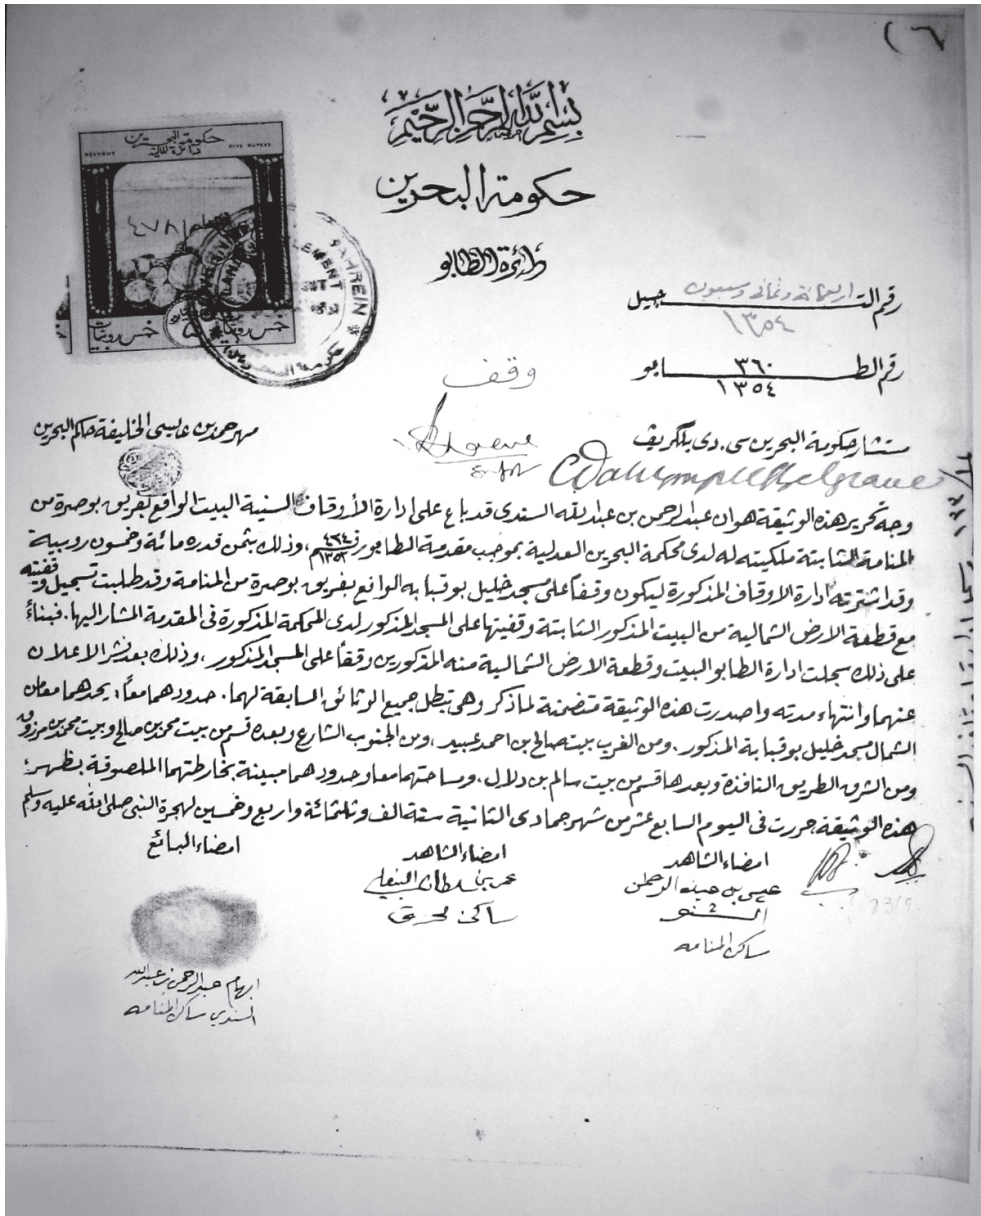 ٦)
بسم الله الرحمن الرحيم
حكومة البحرين
دائرة الطابو
حكومة البحرين
دائرة المالية
REVENUE FIVE RUPEES
٤٧٨/
خمس روبيات ٥ خمس روبيات
BAHREIN
رقم التسجيل اربعمائة وثمانى وسبعون
١٣٥٤
رقم الطابو ٣٦٠
١٣٥٤
وقف
مستشار حكومة البحرين سى. دى بلگريف
مهر حمد بن عايسى الخليفة حاكم البحرين
C Dalrymple Belgrave
وجه تحرير هذه الوثيقة هو ان عبدالرحمن بن عبدالله السندى قد باع على ادارة الأوقاف السنية البيت الواقع بفريق بوصرة من
المنامة الثابتة ملكيته له لدى محكمة البحرين العدلية بموجب مقدمة الطابو نمرة ٤٦٤ ١٣٥٢، وذلك بثمن قدره مائة وخمسون روبية
وقد اشترته ادارة الاوقاف المذكورة ليكون وقفا على مسجد خليل بوقبابه الواقع بفريق بوصرة من المنامة وقد طلبت تسجيل وقفيته
مع قطعة الارض الشمالية من البيت المذكور الثابتة وقفيتها على المسجد المذكور لدى المحكمة المذكورة فى المقدمة المشار اليها. فبناءً
على ذلك سجلت ادارة الطابو البيت وقطعة الارض الشمالية منه المذكورين وقفا على المسجد المذكور، وذلك بعد نشر الاعلان
عنهما وانتهاء مدته واصدرت هذه الوثيقة متضمنة لما ذكر وهى تبطل جميع الوثائق السابقة لهما. حدودهما معاً: يحدهما معا من
الشمال مسجد خليل بوقبابة المذكور، ومن الغرب بيت صالح بن احمد عبيد، ومن الجنوب الشارع وبعده قسم من بيت محمد بن صالح وبيت محمد بن مرزوق
ومن الشرق الطريق النافذة وبعدها قسم من بيت سالم بن دلال، ومساحتهما معا وحدودهما مبينة بخارطتهما الملصوقة بظهر
هذه الوثيقة حررت فى اليوم السابع عشر من شهر جمادى الثانية سنة الف وثلثمائة واربع وخمسين لهجرة النبى صلى الله عليه وسلم
امضاء الشاهد
عيسى بن عبد الرحمن
ساكن المنامه
امضاء الشاهد
عمر بن سلطان
ساكن محرق
امضاء البائع
ابهام عبدالرحمن بن عبدالله
السندي ساكن المنامه